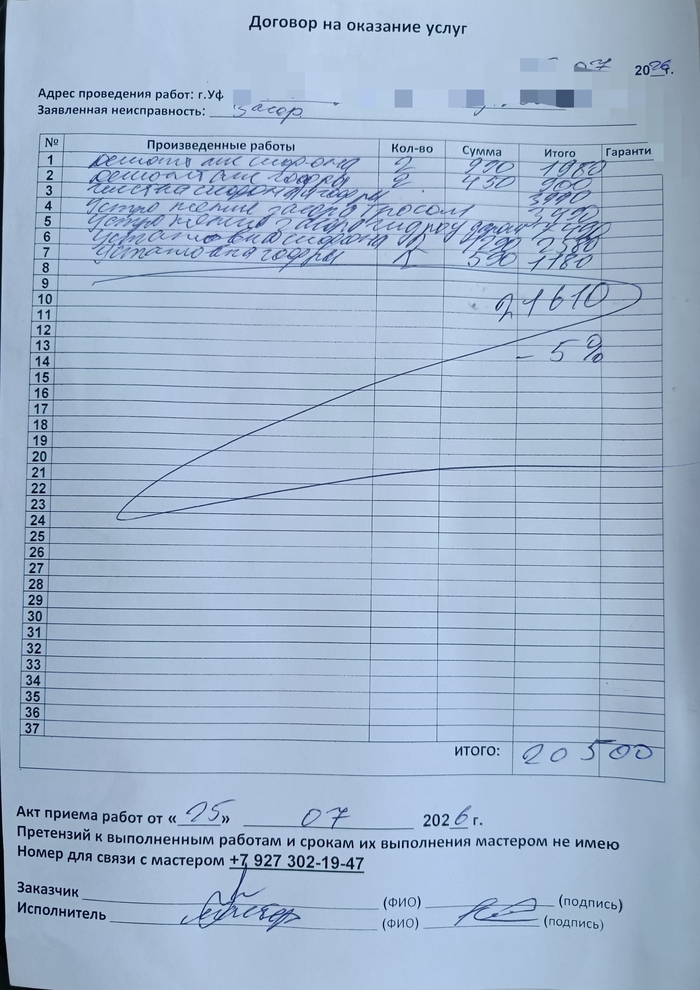 Договор на оказание услуг
07 2026г.
Адрес проведения работ: г.Уф
Заявленная неисправность: Засор
№ Произведенные работы Кол-во Сумма Итого Гаранти
1 Демонтаж сифона 2 990 1980
2 Демонтаж гофры 2 450 900
3 чистка сифона гофры 3990
4 Устранение засора тросом 3490
5 Устранение засора гидро
6 Установка сифона 2580
7 Установка гофры 590 1180
8
9
10 21610
11
12
13 - 5%
14
15
16
17
18
19
20
21
22
23
24
25
26
27
28
29
30
31
32
33
34
35
36
37
ИТОГО: 20500
Акт приема работ от «25» 07 2026 г.
Претензий к выполненным работам и срокам их выполнения мастером не имею
Номер для связи с мастером +7 927 302-19-47
Заказчик (ФИО) (подпись)
Исполнитель (ФИО) (подпись)